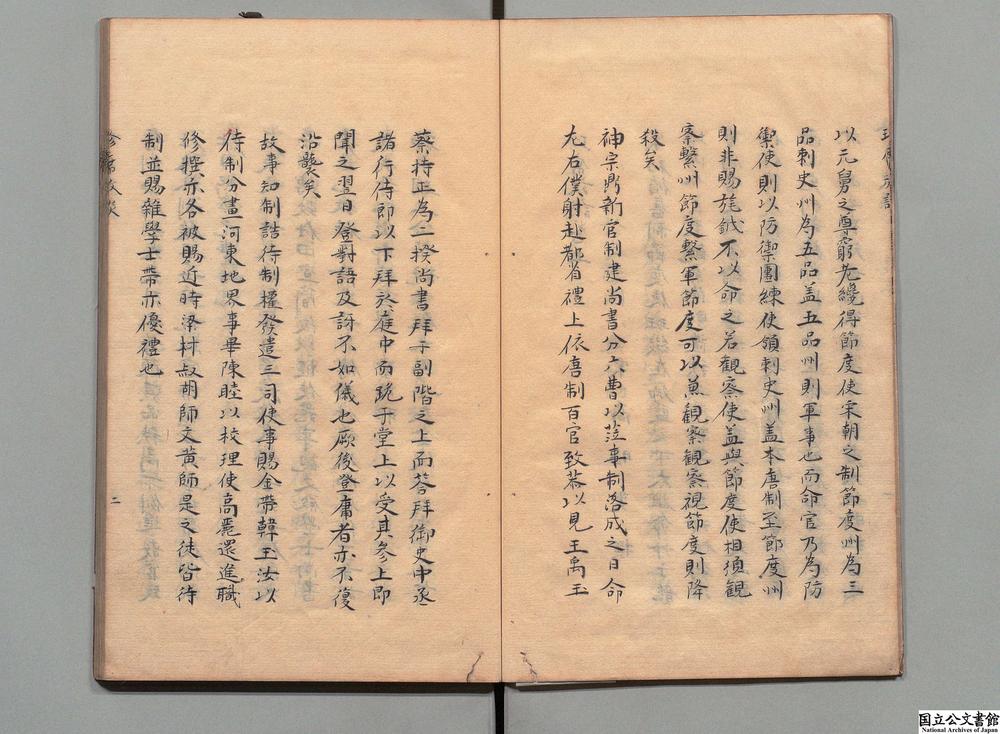 以元舅之尊窮老纔得節度使宋朝之制節度州為三
品刺史州為五品盖五品州則軍事也而命官乃為防
禦使則以防禦團練使領刺史州盖本唐制至節度州
則非賜旄鉞不以命之若觀察使盖與節度使相須觀
察繫州節度繫軍節度可以兼觀察觀察視節度則降
殺矣
神宗鼎新官制建尚書分六曹以蒞事制落成之日命
左右僕射赴都省禮上依唐制百官致恭以見王禹玉
蔡持正為二揆尚書拜于副階之上而答拜御史中丞
諸行侍郎以下拜於庭中而跪于堂上以受其參上即
聞之翌日登對語及訝不如儀也厥後登庸者亦不復
沿襲矣
故事知制誥待制權發遣三司使事賜金帶韓玉汝以
待制分畫河東地界事畢陳睦以校理使高麗還進職
修撰亦各被賜近時梁材叔胡師文黃師是之徒皆待
制並賜雜學士帶亦優禮也
二
国立公文書館
National Archives of Japan